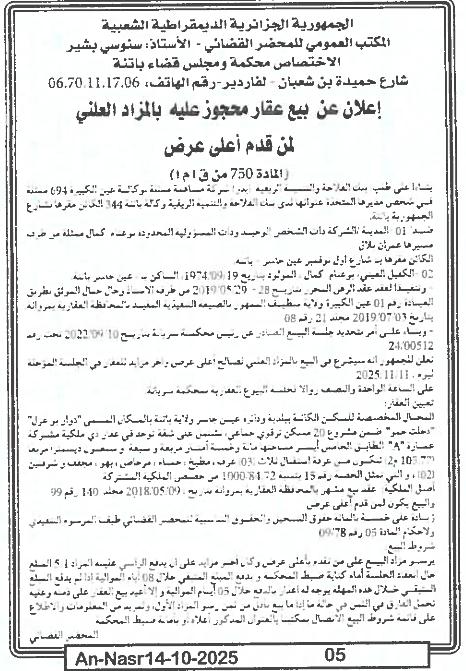 الجمهورية الجزائرية الديمقراطية الشعبية
المكتب العمومي للمحضر القضائي - الأستاذ: سنوسي بشير
الاختصاص محكمة ومجلس قضاء باتنة
شارع حميدة بن شعبان - لفاردير - رقم الهاتف: 06.70.11.17.06
إعلان عن بيع عقار محجوز عليه بالمزاد العلني
لمن قدم أعلى عرض
(المادة 750 من ق ا م ا)
بناءا على طلب بنك الفلاحة والتنمية الريفية شركة مساهمة ممثلة بوكالة عين الكبيرة 694 ممثلة
في شخص مديرها المتخذة عنوانها لدى بنك الفلاحة والتنمية الريفية وكالة باتنة 344 الكائن مقرها بشارع
الجمهورية باتنة.
ضد: 01- المدينة/ الشركة ذات الشخص الوحيد وذات المسؤولية المحدودة بوعنام كمال ممثلة من طرف
مسيرها
الكائن مقرها ب شارع أول نوفمبر عين جاسر - باتنة
02- الكفيل العيني: بوعنام كمال، المولود بتاريخ 1974/09/19، الساكن ب عين جاسر باتنة
- وتنفيذا لعقد عقد الرهن المحرر بتاريخ 28 - 2019/05/29 من طرف الأستاذ
العيادة رقم 01 عين الكبيرة ولاية سطيف الممهور بالصيغة التنفيذية المقيد بالمحافظة العقارية بمروانة
بتاريخ 2019/07/03 مجلد 21 رقم 08
- وبناء على أمر بتحديد جلسة البيع الصادر عن رئيس محكمة سريانة بتاريخ 2022/09/10 تحت رقم
24/00512
نعلن للجمهور أنه سيشرع في البيع بالمزاد العلني لصالح أعلى عرض وآخر مزايد للعقار في الجلسة المؤجلة
ليوم: 2025/11/11
على الساعة الواحدة والنصف زوالا بجلسة البيوع العقارية بمحكمة سريانة
تعيين العقار:
المحال المخصصة للسكن الكائنة ببلدية ودائرة عين جاسر ولاية باتنة بالمكان المسمى "دوار بوغزل"
"دخلت حمو" ضمن مشروع 20 مسكن ترقوي جماعي، تشتمل على شقة توجد في عقار ذي ملكية مشتركة
عمارة "A" الطابق الخامس أيسر مساحتها مائة وخمسة أمتار مربعة وسبعة وسبعون ديسمتر مربعا
(105.77 م2) تتكون من غرفة استقبال، ثلاث (03) غرف، مطبخ، حمام، مرحاض، بهو، مجفف و شرفتين
(02)، والتي تمثل الحصة رقم 15 بنسبة 1000/84.72 من حصص الملكية المشتركة
أصل الملكية: عقد بيع مشهر بالمحافظة العقارية بمروانة بتاريخ: 2018/05/09 مجلد 140 رقم 99
والبيع يكون لمن قدم أعلى عرض
زيادة على خمسة بالمائة حقوق التسجيل والحقوق التناسبية للمحضر القضائي طبقا للمرسوم التنفيذي
ولأحكام المادة 05 رقم 09/78
شروط البيع
يرسو مزاد البيع على من تقدم بأعلى عرض وكان آخر مزايد على أن يدفع الراسي عليه المزاد 5/1 المبلغ
حال انعقاد الجلسة أمام كتابة ضبط المحكمة و يدفع المبلغ المتبقي خلال 08 أيام الموالية إذا لم يدفع المبلغ
المتبقي خلال هذه المهلة يوجه له إعذار بالدفع خلال 05 أيام الموالية وإلا أعيد بيع العقار على ذمته وعليه
تحمل الفارق في الثمن في حالة ما إذا ما بيع بأقل من ثمن رسو المزاد الأول، ولمزيد من المعلومات والاطلاع
على قائمة شروط البيع الاتصال بمكتبنا بالعنوان المذكور أعلاه أو بأمانة ضبط المحكمة
المحضر القضائي
An-Nasr14-10-2025 05